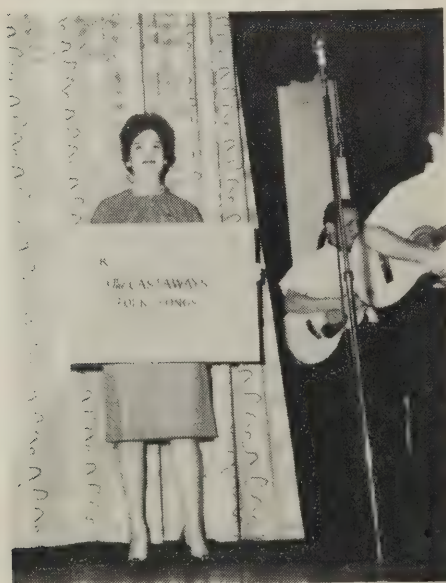 R
The CASTAWAYS
FOLK SONGS